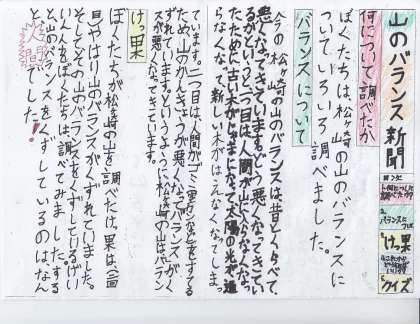 山のバランス新聞
何について調べたか
けっ果
クイズ
何について調べたか
ぼくたちは、松ヶ崎の山のバランスに
ついていろいろ調べました。
バランスについて
今の松ヶ崎の山のバランスは、昔とくらべて、
悪くなってきています。どう悪くなってきてい
るかというと、一つ目は、人間が山に入らなくなっ
たために、古い木がじゃまになって太陽の光が通
らなくなって、新しい木がはえなくなってしま
います。二つ目は、人間がゴミ
をすてる
ため、山のかんきょうが悪くなってバランスがく
ずれています。というように松ヶ崎の山はバラン
スが悪くなってきています。
けっ果
ぼくたちが松ヶ崎の山を調べたけっ果は、
見やはり山のバランスがくずれていました。
そしてその山のバランスをくずしているげい
いんをぼくたちは、調べてみました。する
と、山のバランスをくずしているのは、なん
と人間でした!